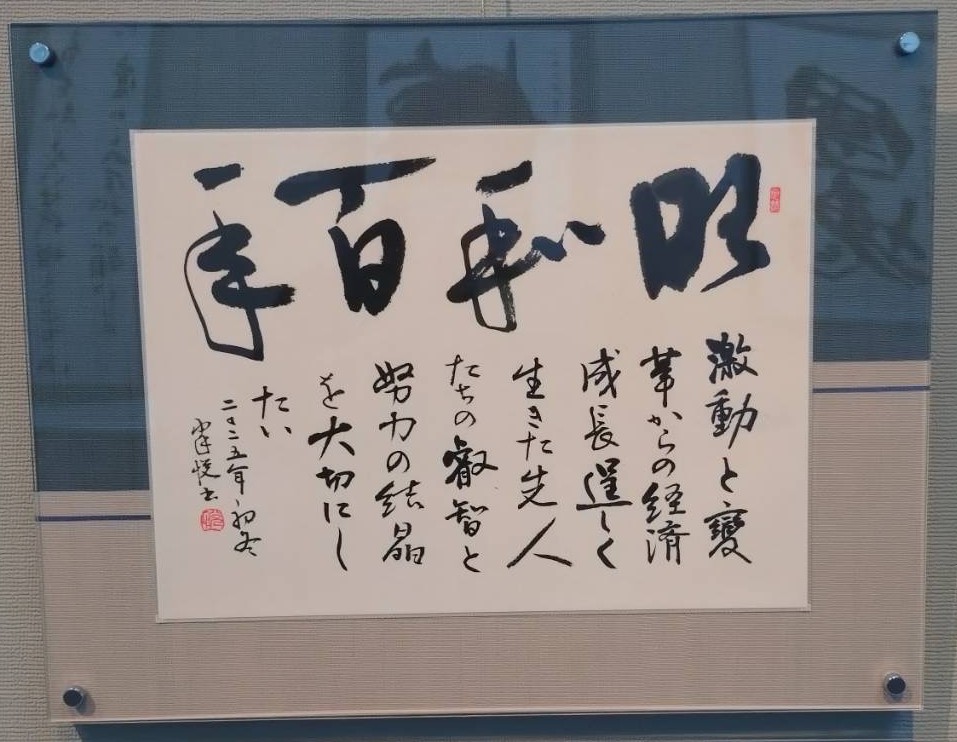 昭和百年
激動と變
革からの経済
成長逞しく
生きた先人
たちの叡智と
努力の結晶
を大切にし
たい
二〇二五年初冬